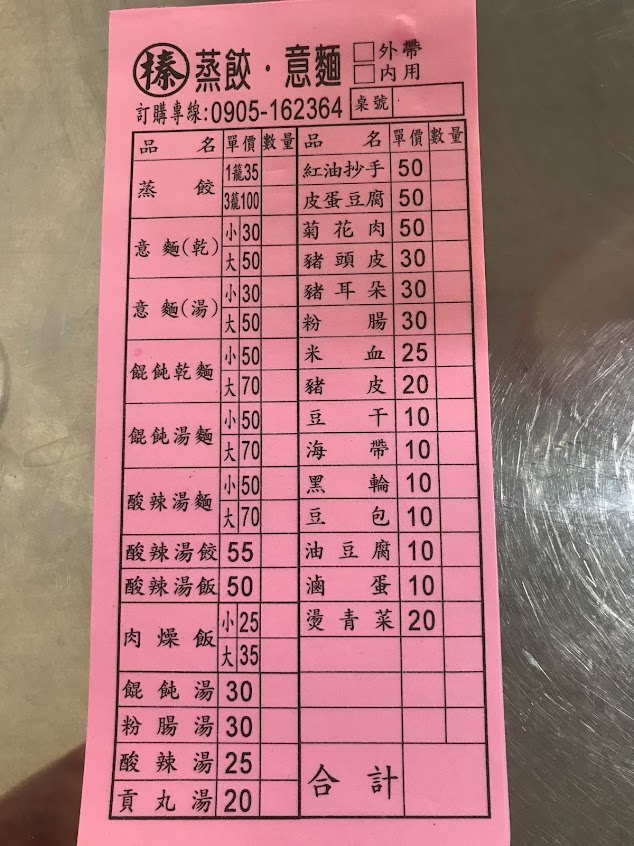 榛 蒸餃·意麵 □外帶
□內用
訂購專線:0905-162364 桌號
品名 單價 數量
蒸餃 1籠35
3籠100
意麵(乾) 小30
大50
意麵(湯) 小30
大50
餛飩乾麵 小50
大70
餛飩湯麵 小50
大70
酸辣湯麵 小50
大70
酸辣湯餃 55
酸辣湯飯 50
肉燥飯 小25
大35
餛飩湯 30
粉腸湯 30
酸辣湯 25
貢丸湯 20
品名 單價 數量
紅油抄手 50
皮蛋豆腐 50
菊花肉 50
豬頭皮 30
豬耳朵 30
粉腸 30
米血 25
豬皮 20
豆干 10
海帶 10
黑輪 10
豆包 10
油豆腐 10
滷蛋 10
燙青菜 20
合計